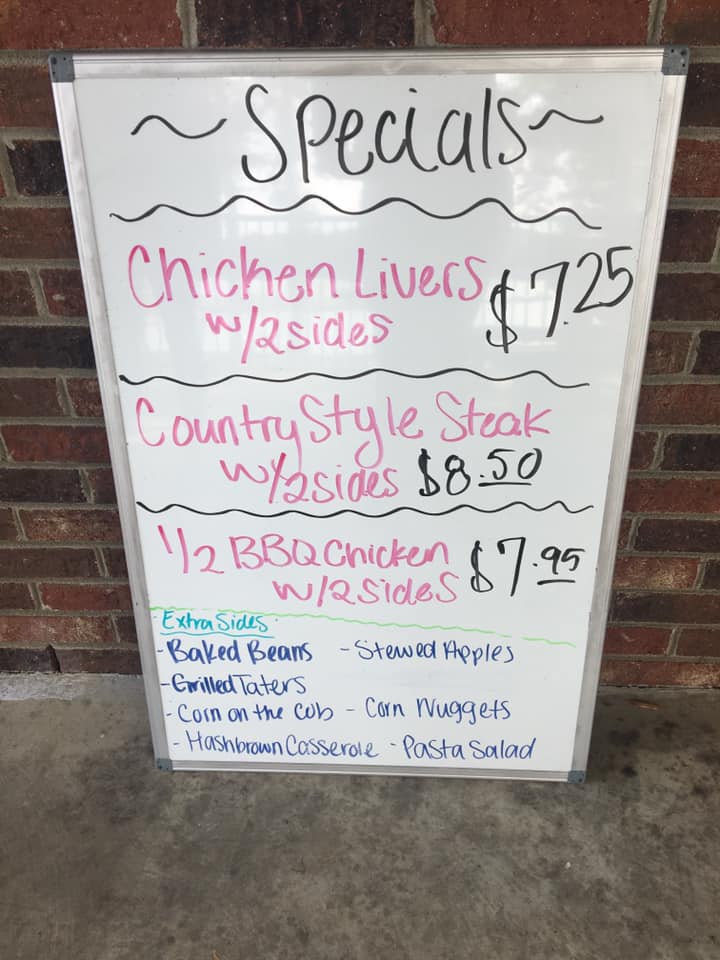 ~Specials~
Chicken Livers $7.25
w/2sides
Country Style Steak
w/2sides $8.50
1/2 BBQ Chicken $7.95
w/2sides
Extra Sides
-Baked Beans -Stewed Apples
-Grilled Taters
-Corn on the cob - Corn Nuggets
- Hashbrown Casserole - Pasta Salad